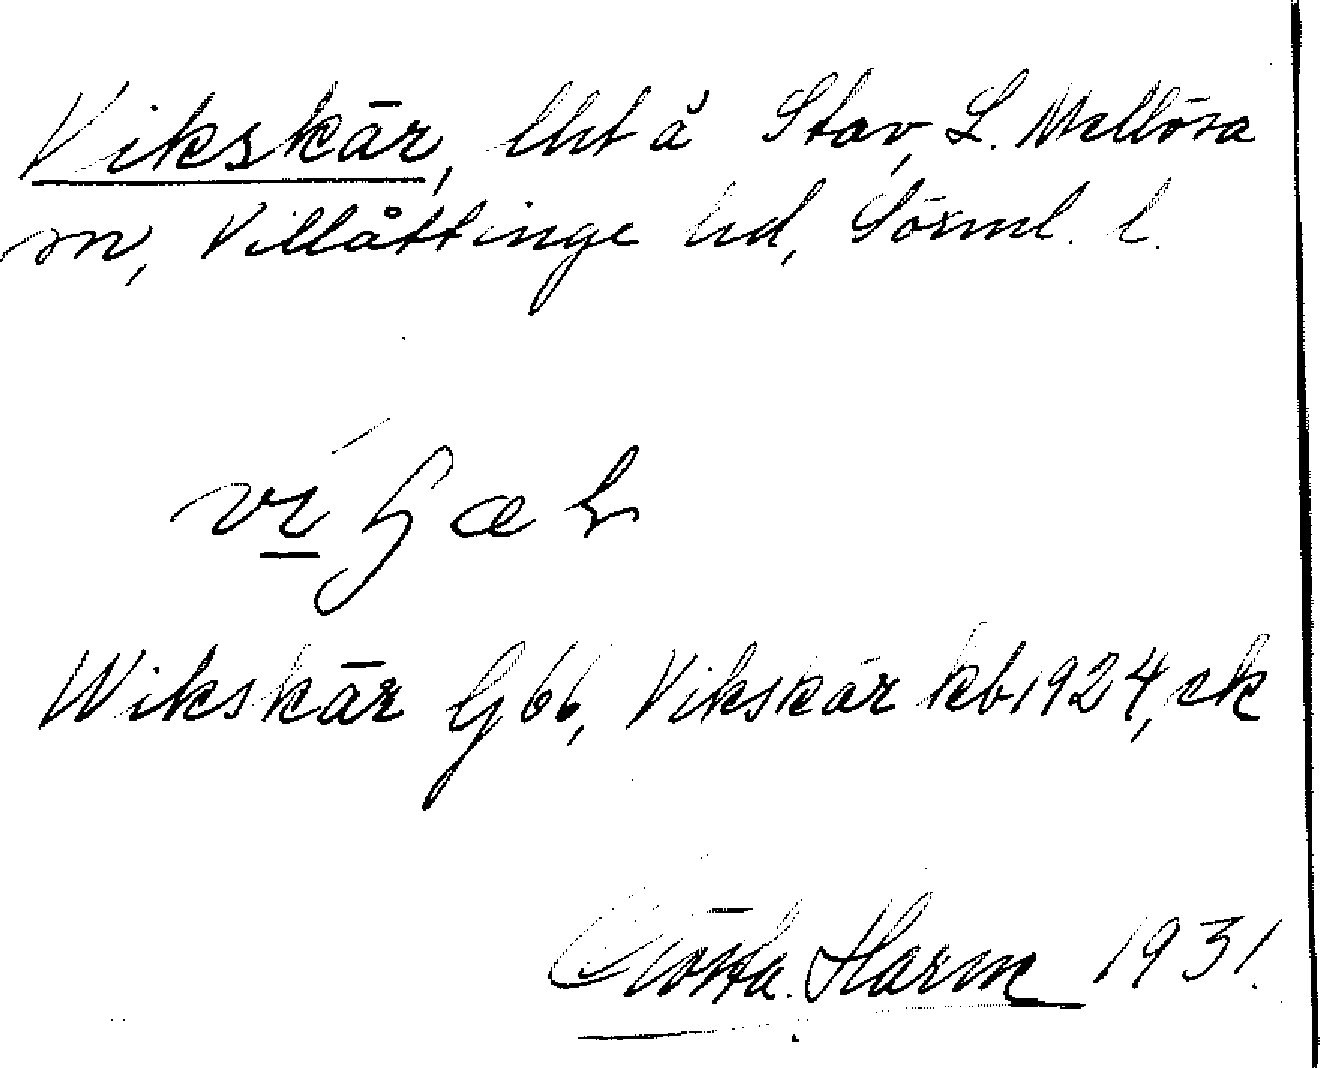 Vikskär, lht å Stav, L. Mellösa
sn, Villåttinge hd, Sörml. l.
Wikskär G66, Vikskär kb 1924, ek
Gösta Harm 1931.